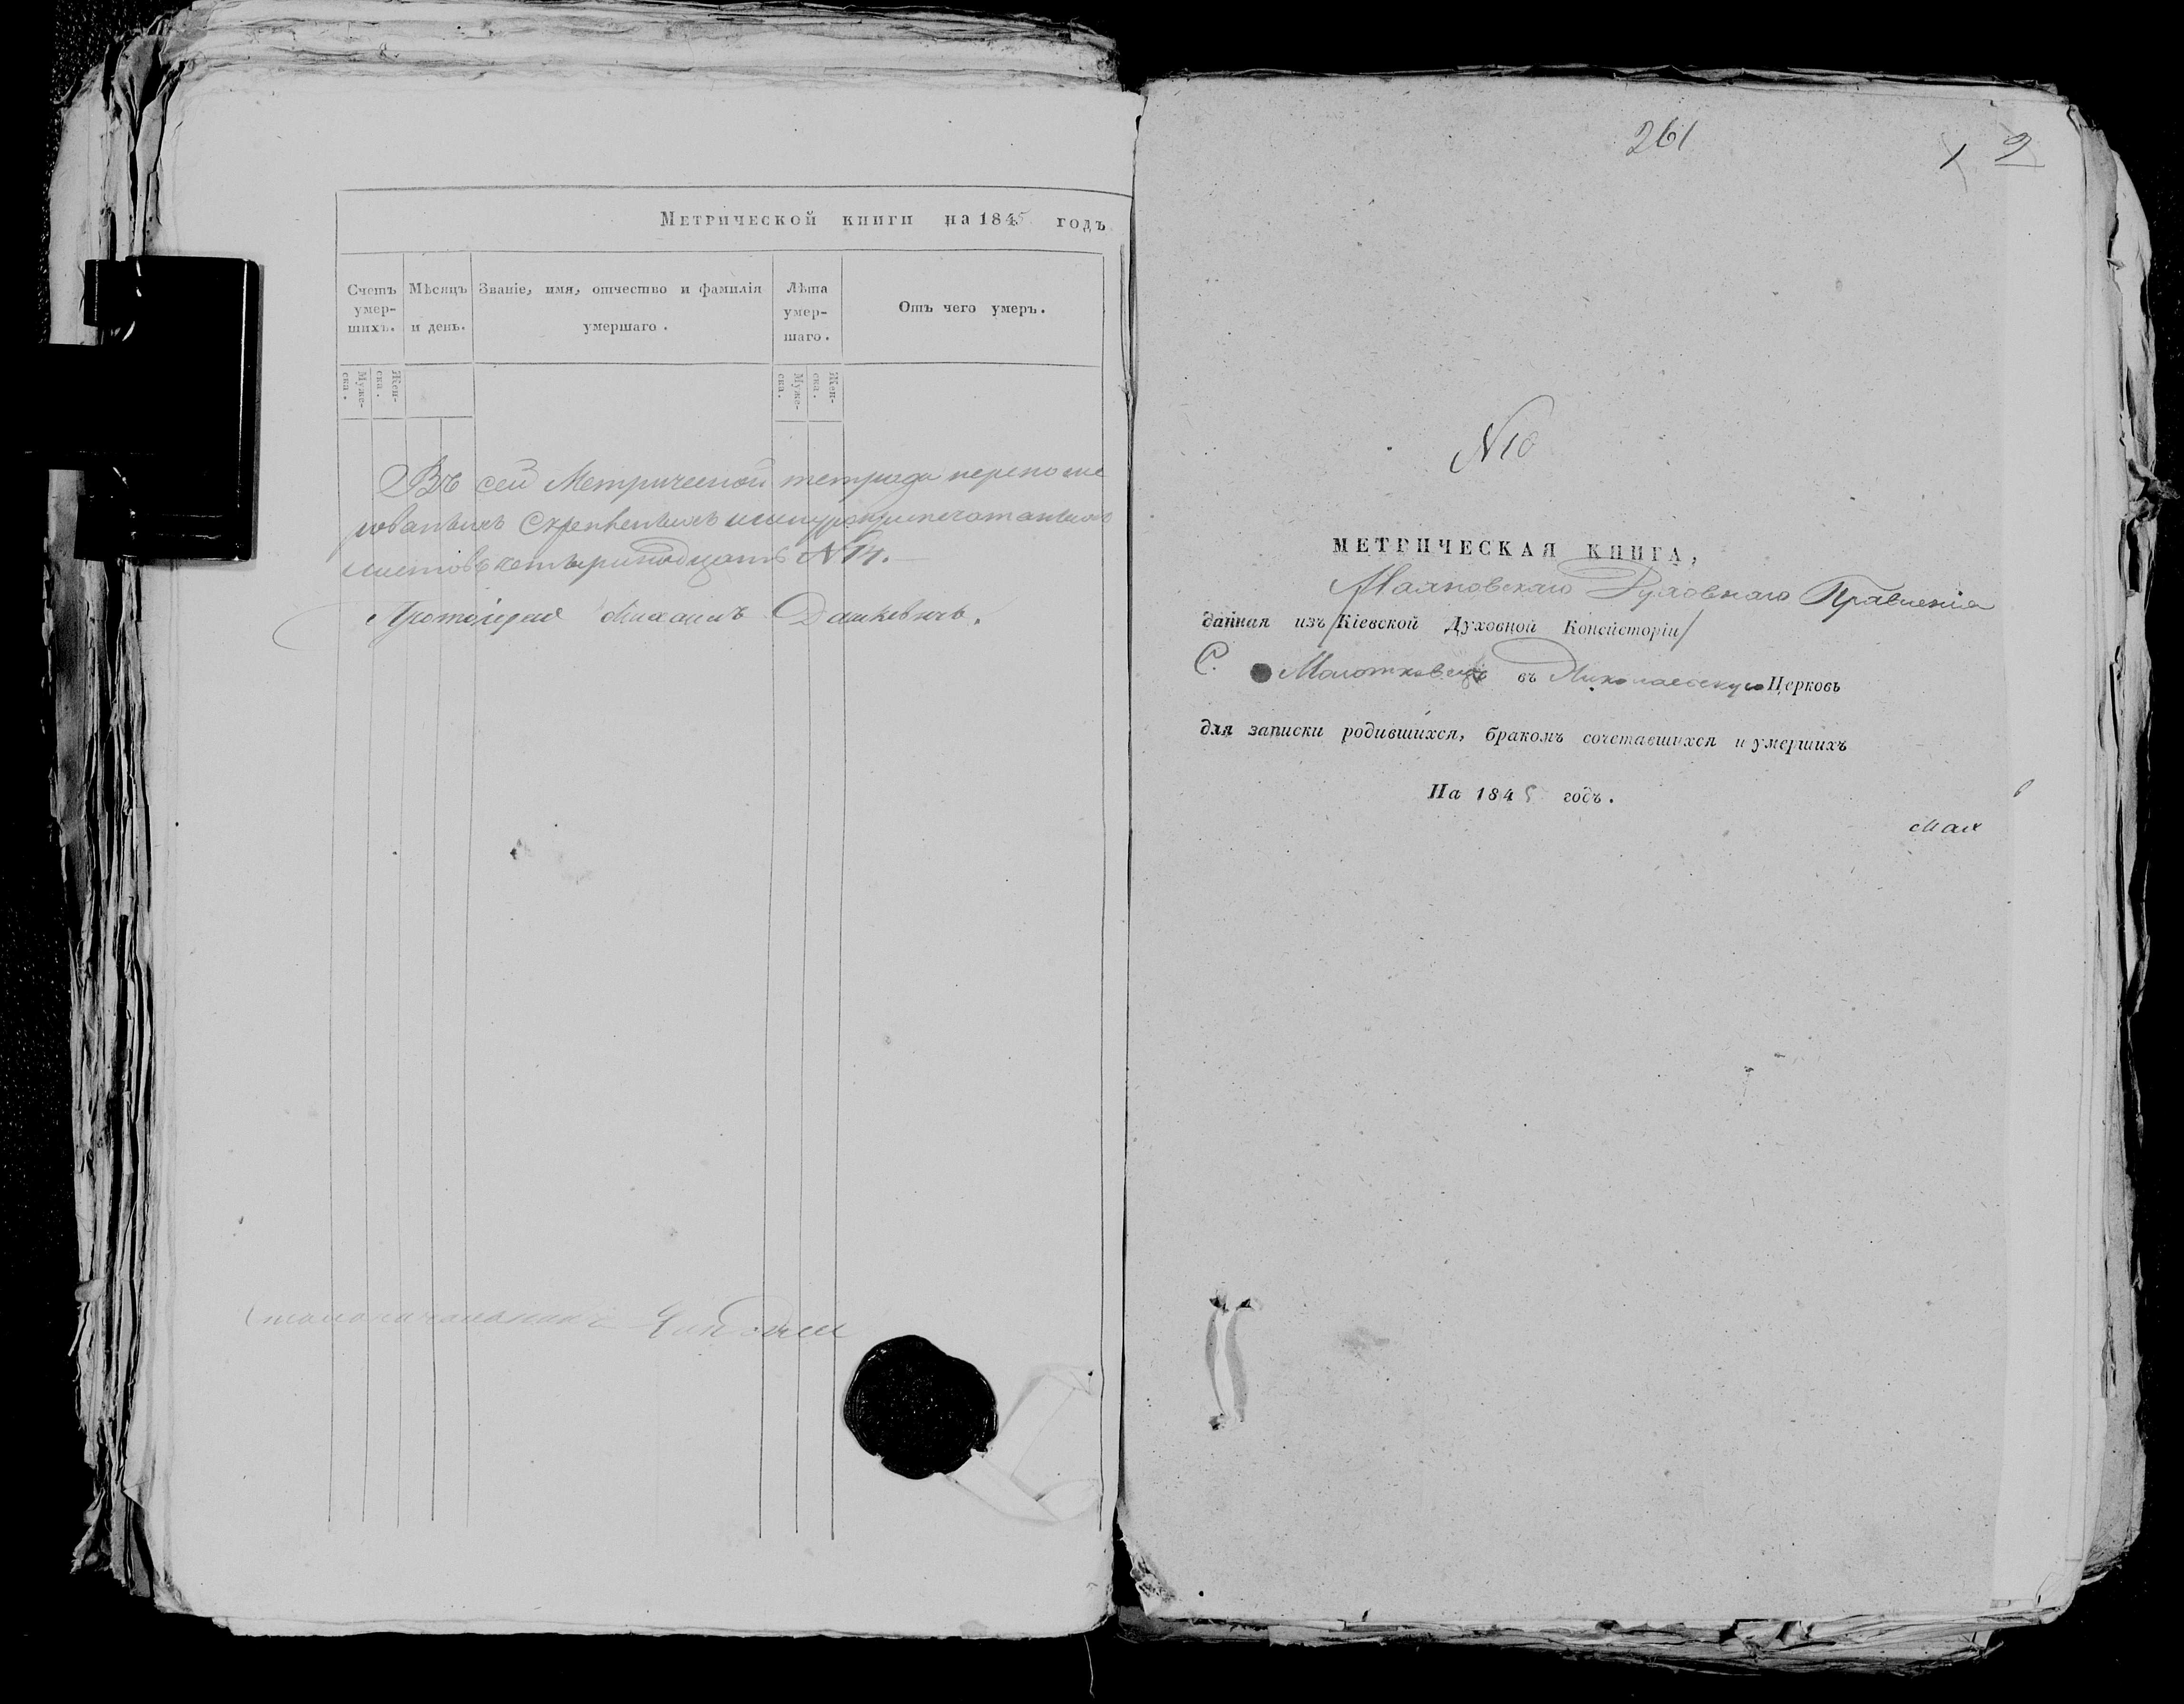 Метрической книги на 1845 годъ
Счетъ умер-шихъ. Мѣсяцъ и день. Званіе, имя, отчество и фамилія умершаго. Лѣта умер-шаго. Отъ чего умеръ.
Муже-ска. Жен-ска. Муже-ска. Жен-ска.
Въ сей Метрической тетради перенуме
рованныхъ скрепленныхъ и шнуроприпечатанныхъ
листовъ четырнадцать N 14.
Протоіерей Михаилъ Дашкевичъ.
Столоначальникъ
261
1 2
N 10
МЕТРИЧЕСКАЯ КНИГА,
Махновскаго Духовнаго Правленія
данная изъ Кіевской Духовной Консисторіи
С. въ Николаевскую Церковь
для записки родившихся, бракомъ сочетавшихся и умершихъ
На 1845 годъ.
Мах